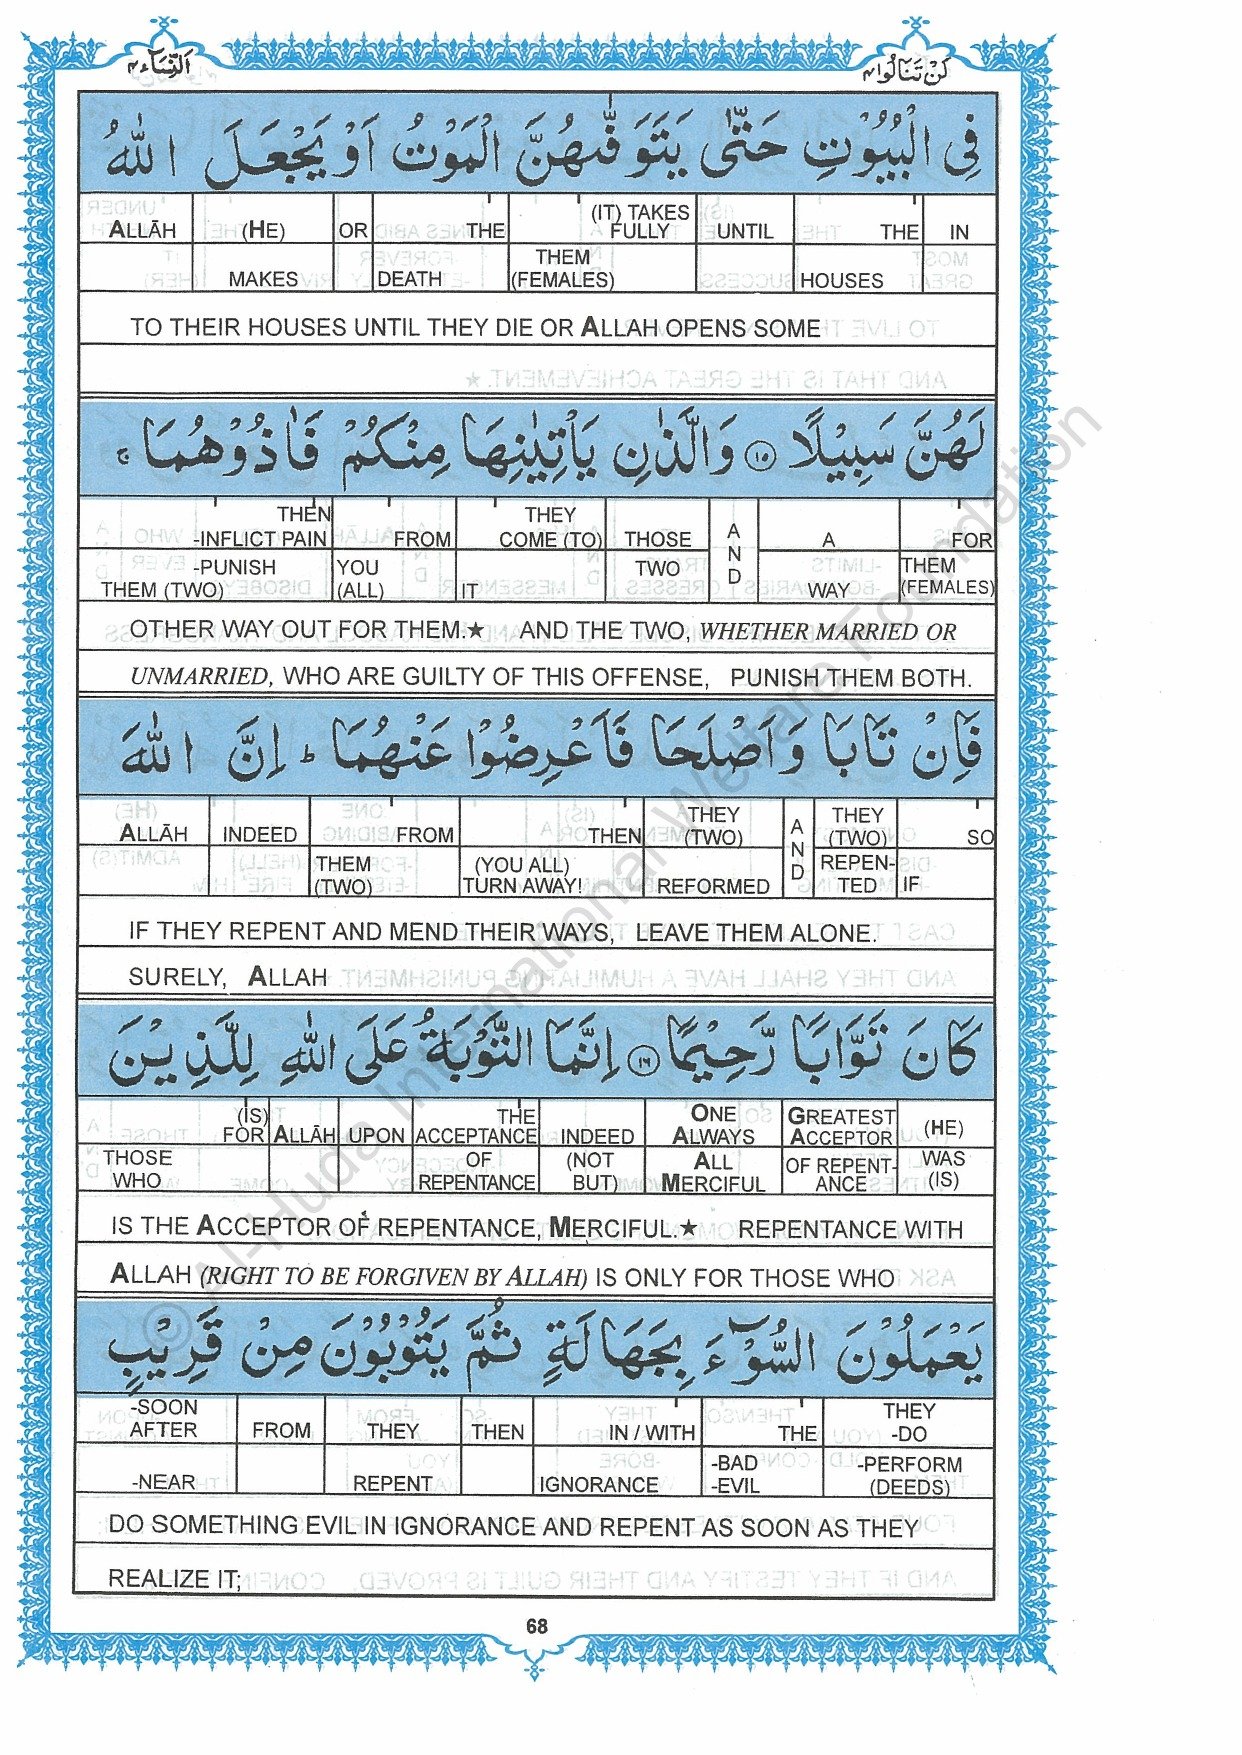 النِّسَاء ٤
لَنْ تَنَالُوا ٤
فِى الْبُيُوْتِ حَتّٰى يَتَوَفّٰىهُنَّ الْمَوْتُ اَوْ يَجْعَلَ اللّٰهُ
ALLĀH (HE) OR THE (IT) TAKES FULLY UNTIL THE IN
MAKES DEATH THEM (FEMALES) HOUSES
TO THEIR HOUSES UNTIL THEY DIE OR ALLAH OPENS SOME
لَهُنَّ سَبِيْلًا ١٥ وَالَّذٰنِ يَاْتِيٰنِهَا مِنْكُمْ فَاٰذُوْهُمَا ۚ
THEN -INFLICT PAIN FROM THEY COME (TO) THOSE AND A FOR
-PUNISH THEM (TWO) YOU (ALL) IT TWO WAY THEM (FEMALES)
OTHER WAY OUT FOR THEM.★ AND THE TWO, WHETHER MARRIED OR
UNMARRIED, WHO ARE GUILTY OF THIS OFFENSE, PUNISH THEM BOTH.
فَاِنْ تَابَا وَاَصْلَحَا فَاَعْرِضُوْا عَنْهُمَا ؕ اِنَّ اللّٰهَ
ALLĀH INDEED FROM THEN THEY (TWO) AND THEY (TWO) SO
THEM (TWO) (YOU ALL) TURN AWAY! REFORMED REPEN-TED IF
IF THEY REPENT AND MEND THEIR WAYS, LEAVE THEM ALONE.
SURELY, ALLAH
كَانَ تَوَّابًا رَّحِيْمًا ١٦ اِنَّمَا التَّوْبَةُ عَلَى اللّٰهِ لِلَّذِيْنَ
(IS) FOR ALLĀH UPON THE ACCEPTANCE INDEED ONE ALWAYS GREATEST ACCEPTOR (HE)
THOSE WHO OF REPENTANCE (NOT BUT) ALL MERCIFUL OF REPENT-ANCE WAS (IS)
IS THE ACCEPTOR OF REPENTANCE, MERCIFUL.★ REPENTANCE WITH
ALLAH (RIGHT TO BE FORGIVEN BY ALLAH) IS ONLY FOR THOSE WHO
يَعْمَلُوْنَ السُّوْٓءَ بِجَهَالَةٍ ثُمَّ يَتُوْبُوْنَ مِنْ قَرِيْبٍ
-SOON AFTER FROM THEY THEN IN / WITH THE THEY -DO
-NEAR REPENT IGNORANCE -BAD -EVIL -PERFORM (DEEDS)
DO SOMETHING EVIL IN IGNORANCE AND REPENT AS SOON AS THEY
REALIZE IT;
68
© Al-Huda International Welfare Foundation